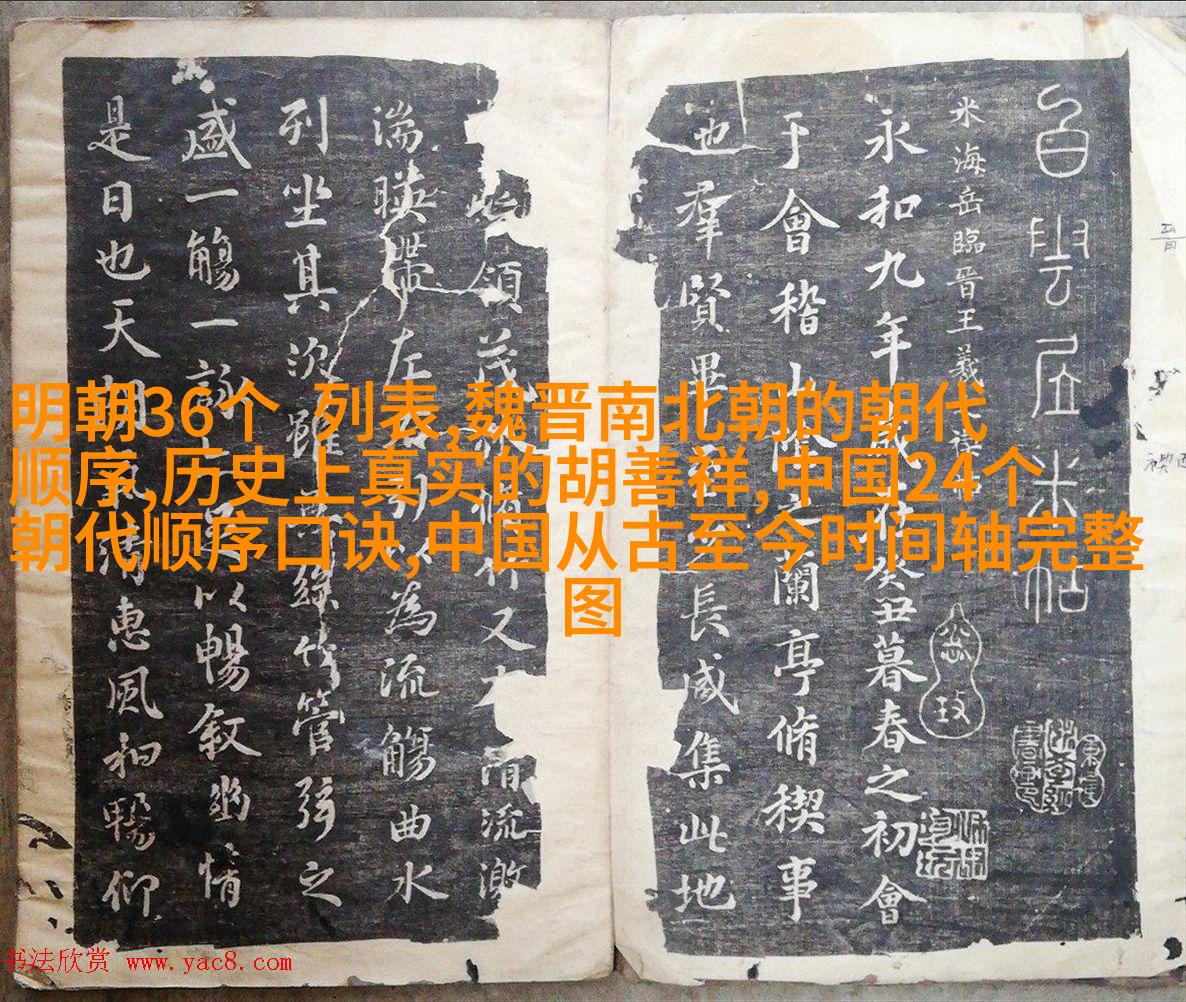 明朝36个 列表,魏晋南北朝的朝代
顺序,历史上真实的胡善祥,中国24个
朝代顺序口诀,中国从古至今时间轴完整
图
白雲居米帖
米海岳臨晉王羲之禊帖
永和九年歲在癸丑暮春之初會
于會稽山陰之闌亭脩禊事
也羣賢畢至少長咸集此地
領茂林脩竹又有清流激
湍暎帶左右引以為流觴曲水
列坐其次雖無絲竹管弦之
盛一觴一詠亦足以暢敘幽情
是日也天朗氣清惠風和暢仰
书法欣赏 www.yac8.com